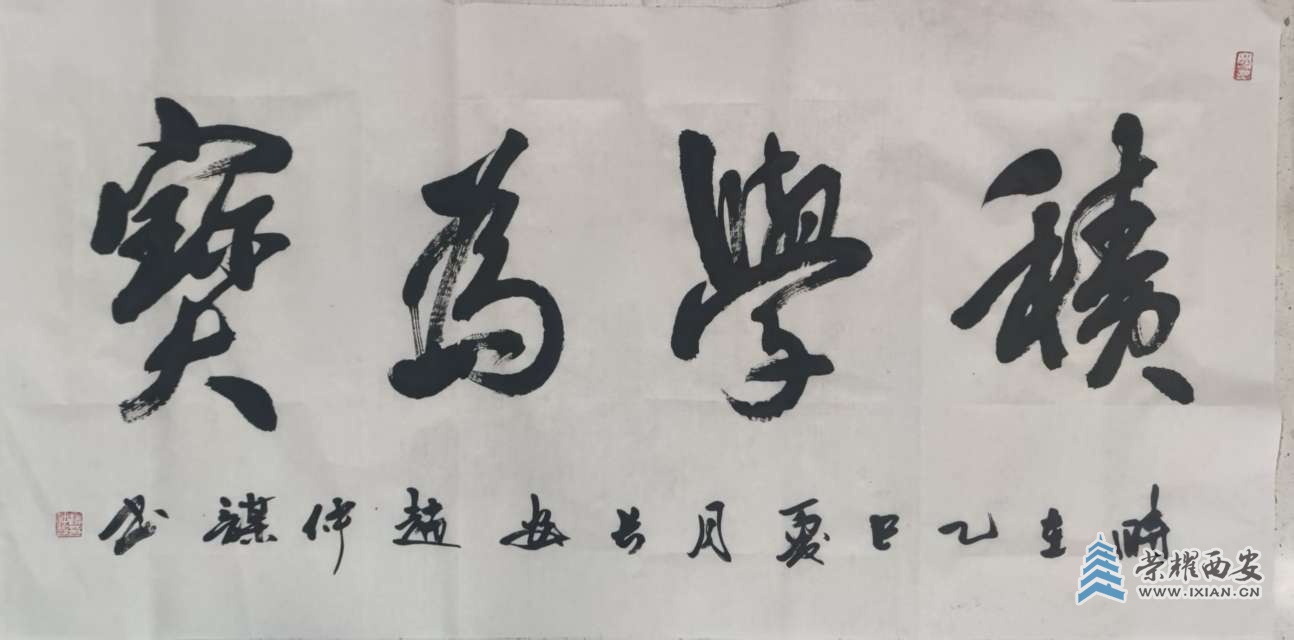 積學為寶
時在乙巳夏月長安趙仲謀書
荣耀西安
WWW.IXIAN.CN